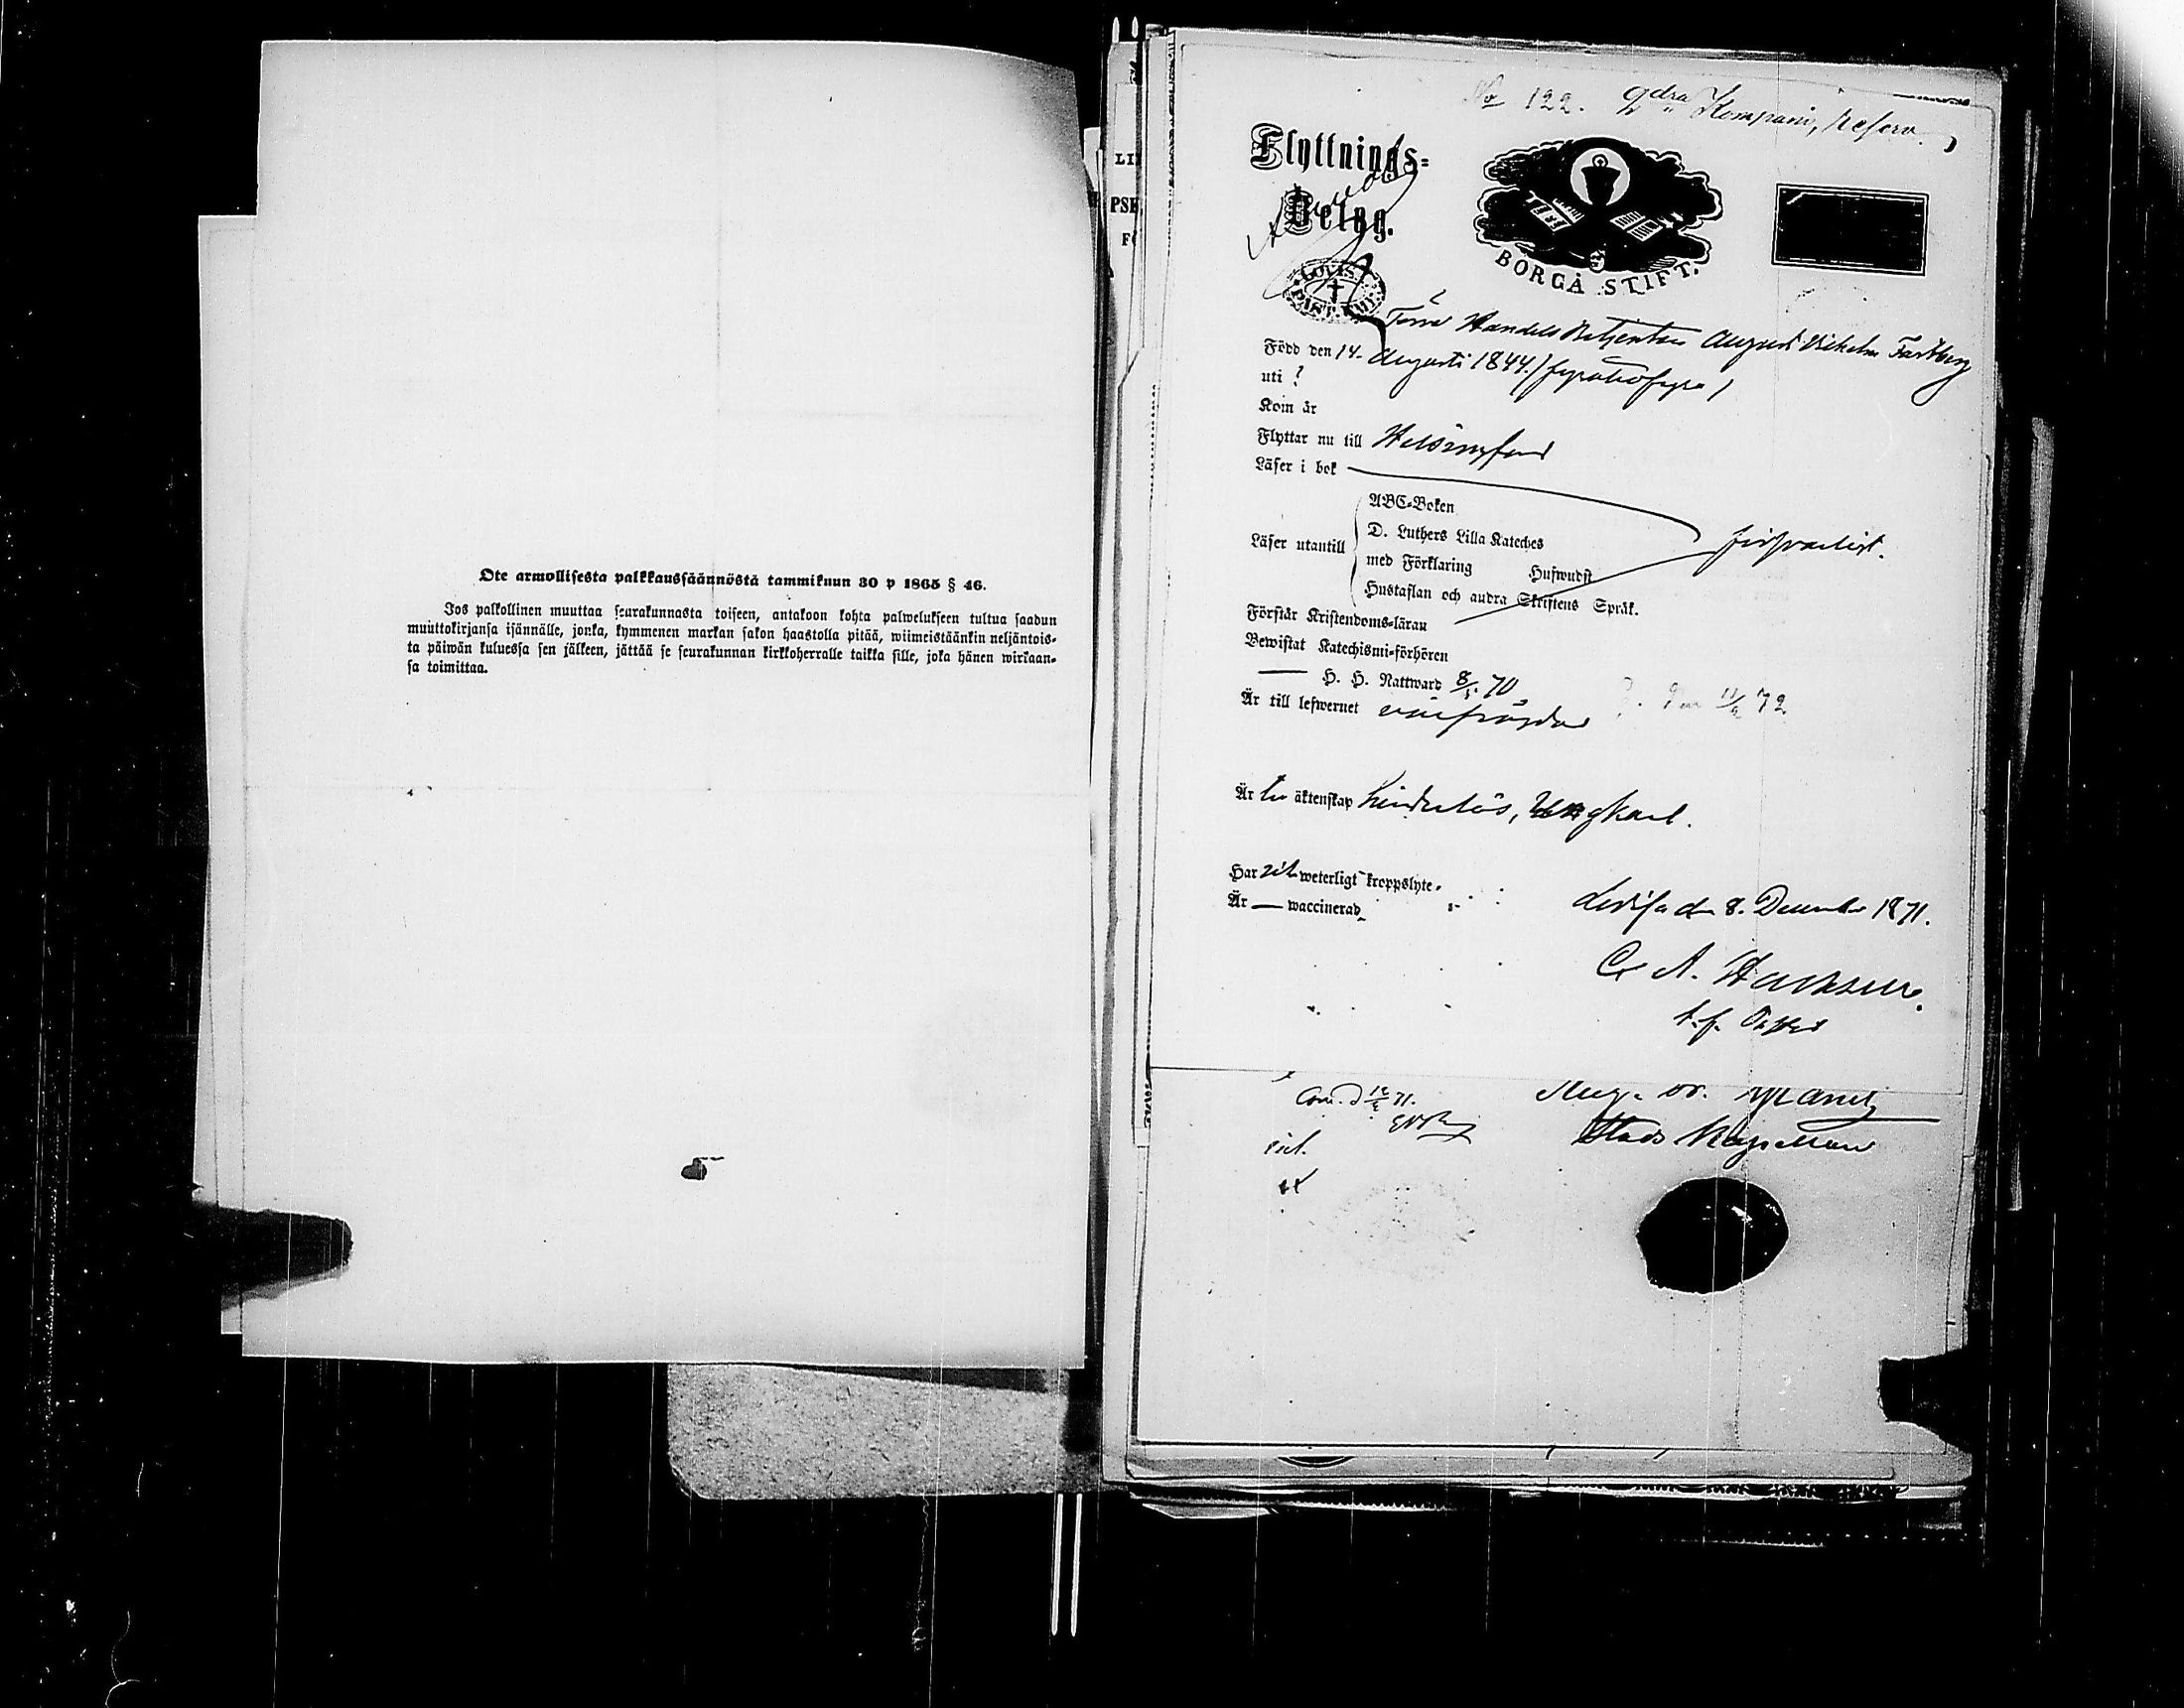 Ote armollisesta palkkaussäännöstä tammikuun 30 p 1865 § 46.
Jos palkollinen muuttaa seurakunnasta toiseen, antakoon kohta palwelukseen tultua saadun
muuttokirjansa isännälle, jonka, kymmenen markan sakon haastolla pitää, wiimeistäänkin neljäntois-
ta päiwän kuluessa sen jälkeen, jättää se seurakunnan kirkkoherralle taikka sille, joka hänen wirkaan-
sa toimittaa.
LI
PSE
No 122. 2dra Kompani, Reserv.
Flyttnings-
Betyg.
BORGÅ STIFT.
LOVISA
PAST. EMB.
Förre Handels Betjenten August Wilhelm Forsberg
Född den 14. Augusti 1844. / fyratiofyra /
uti ?
Kom år
Flyttar nu till Helsingfors
Läser i bok
Läser utantill
ABC-Boken
D. Luthers Lilla Kateches
med Förklaring Hufwudst
Hustaflan och andra Skriftens Språk.
försvarligt.
Förstår Kristendoms-läran
Bewistat Katechismi-förhören
H. H. Nattward 8/5 70
Är till lefwernet oberyktad 72
Är till äktenskap hinderlös, Ungkarl.
Har ej weterligt kroppslyte.
Är — waccinerad
Lovisa den 8. December 1871.
C. A.
t.f. Pastor
71.
Aug.
Stads Kapellan